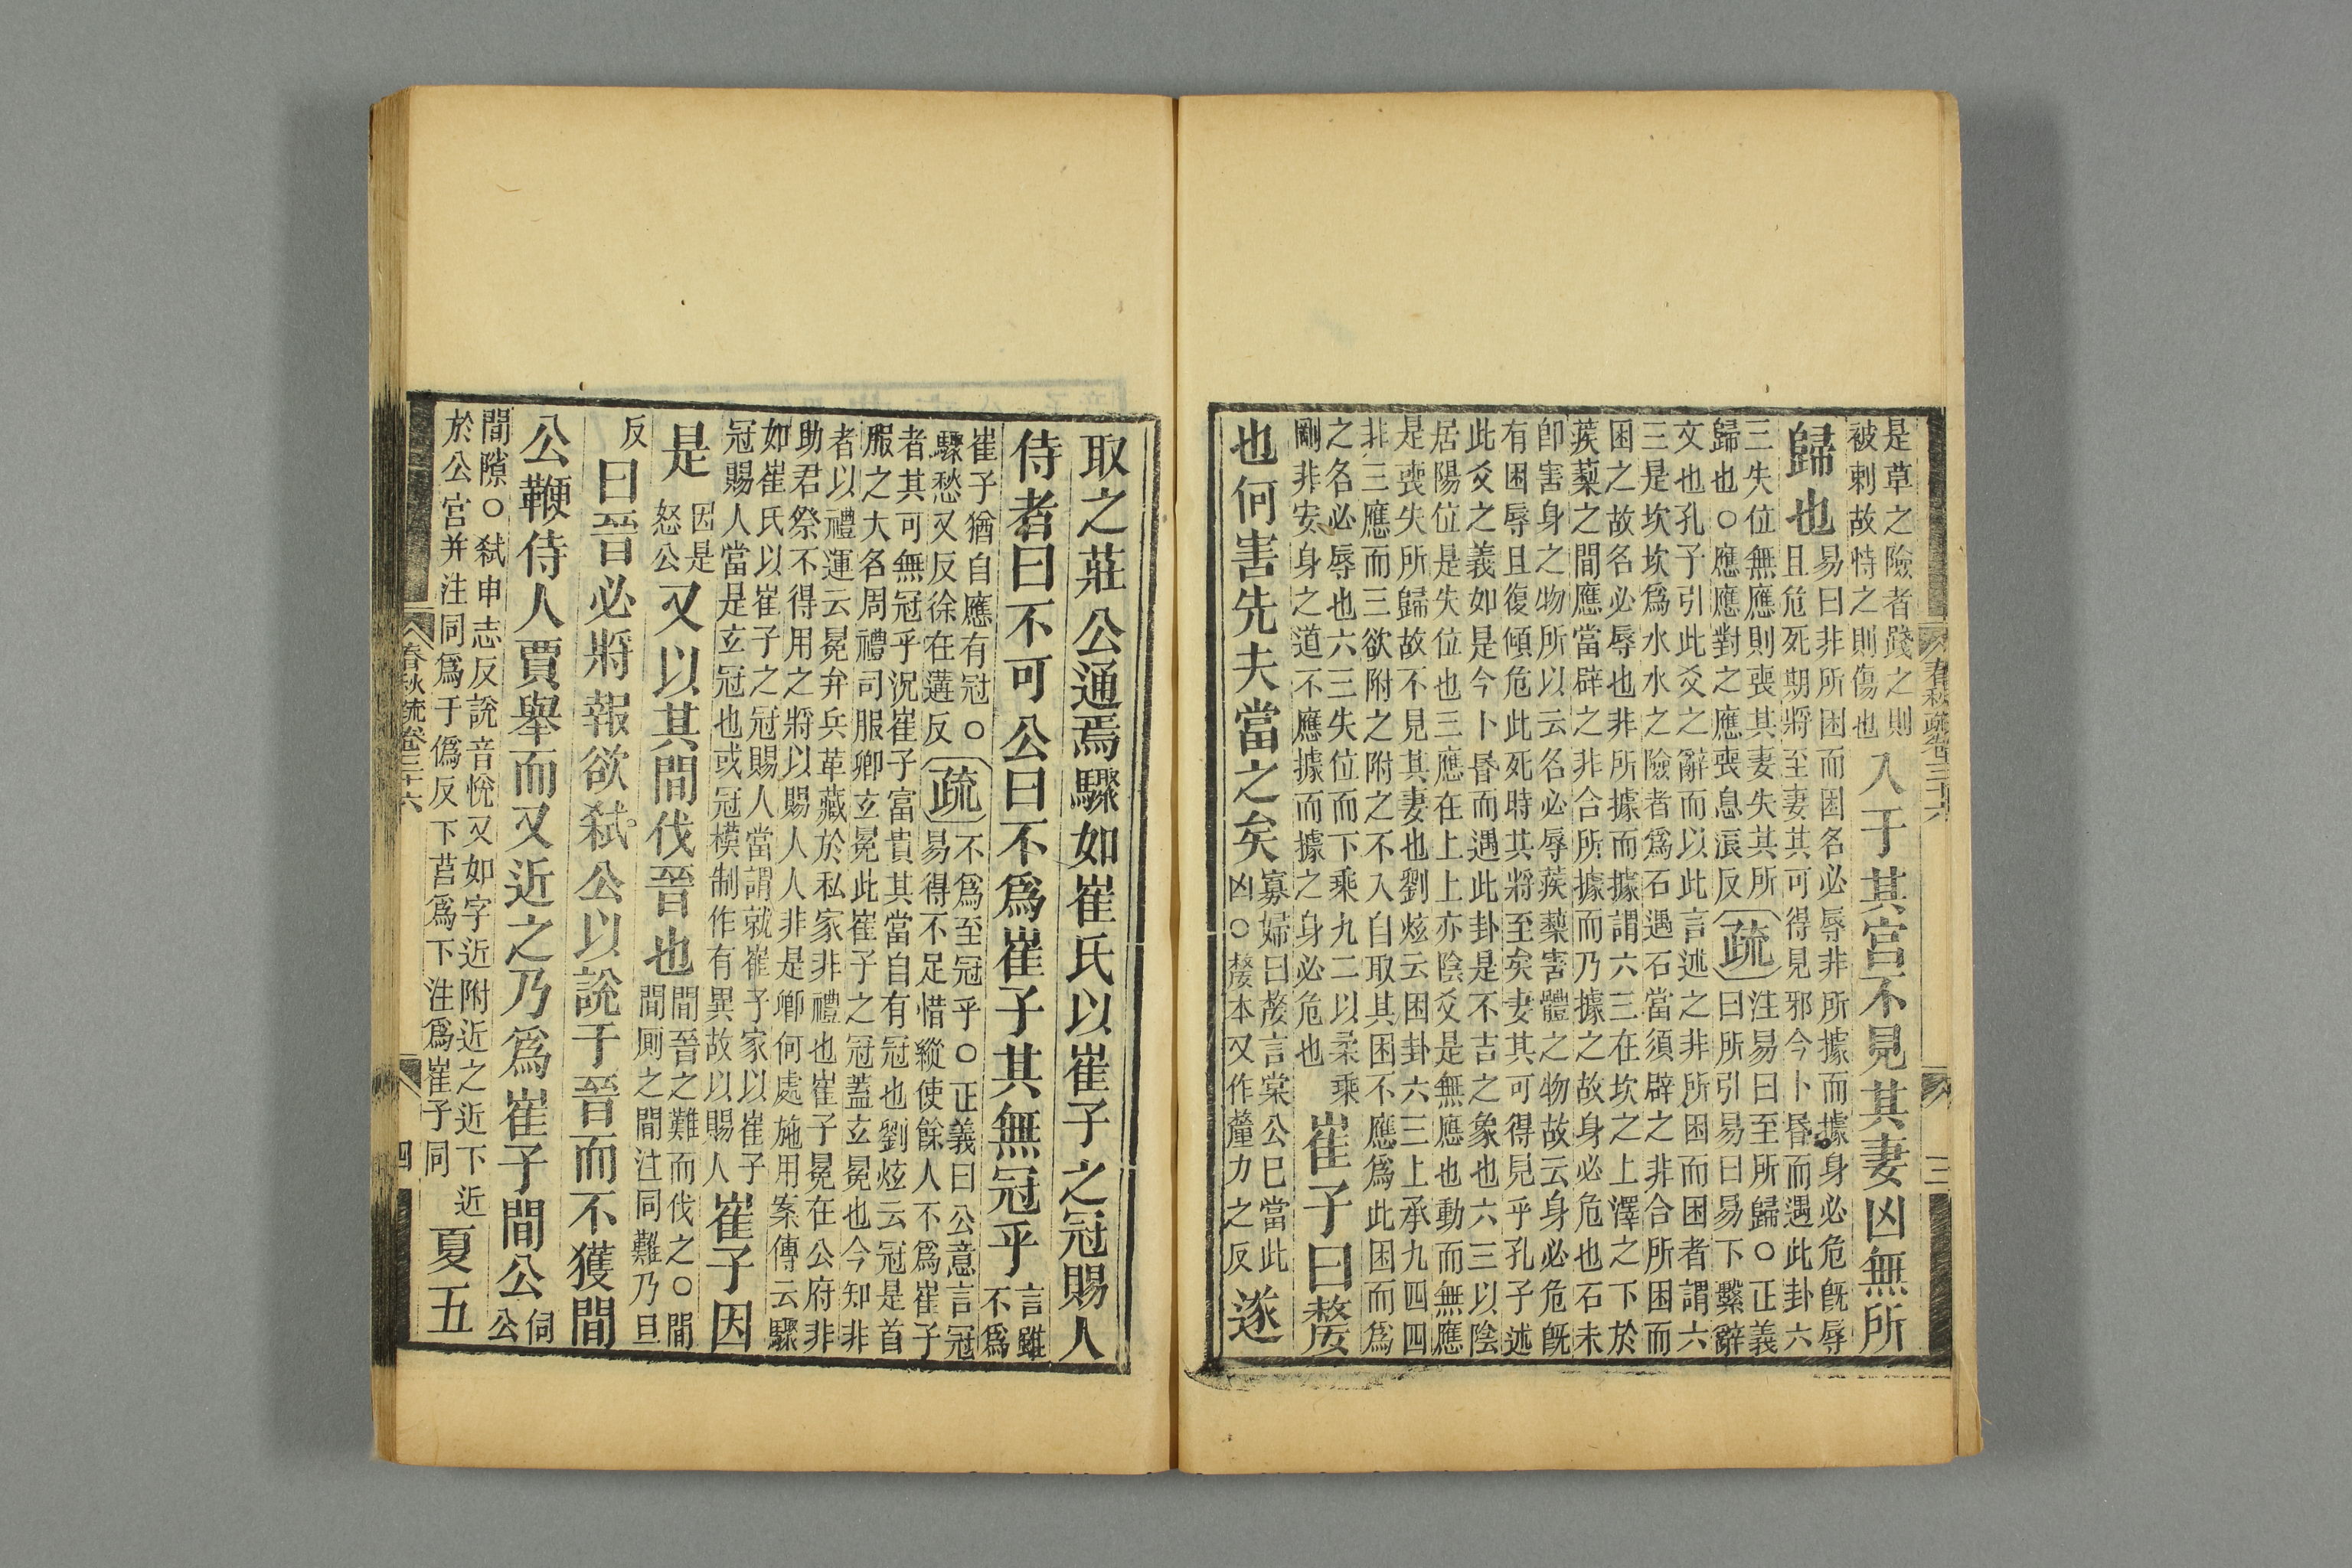 是草之險者踐之則
被刺故恃之則傷也
入于其宮不見其妻凶無所
歸也
易曰非所困而困名必辱非所據而據身必危既辱
且危死期將至妻其可得見邪今卜昬而遇此卦六
三失位無應則喪其妻失其所
歸也○應應對之應喪息浪反
疏
注易曰至所歸○正義
曰所引易曰易下繫辭
文也孔子引此爻之辭而以此言述之非所困而困者謂六
三是坎坎爲水水之險者爲石遇石當須辟之非合所困而
困之故名必辱也非所據而據謂六三在坎之上澤之下於
蒺蔾之間應當辟之非合所據而乃據之故身必危也石未
卽害身之物所以云名必辱蒺蔾害體之物故云身必危旣
有困辱且復傾危此死時其將至矣妻其可得見乎孔子述
此爻之義如是今卜昬而遇此卦是不吉之象也六三以陰
居陽位是失位也三應在上上亦陰爻是無應也動而無應
是喪失所歸故不見其妻也劉炫云困卦六三上承九四四
非三應而三欲附之附之不入自取其困不應爲此困而爲
之名必辱也六三失位而下乘九二以柔乘
剛非安身之道不應據而據之身必危也
崔子曰嫠
也何害先夫當之矣
寡婦曰嫠言棠公已當此
凶○嫠本又作釐力之反
遂
春秋疏卷三十六
三
取之莊公通焉驟如崔氏以崔子之冠賜人
侍者曰不可公曰不爲崔子其無冠乎
言雖
不爲
崔子猶自應有冠○
驟愁又反徐在遘反
疏
不爲至冠乎○正義曰公意言冠
易得不足惜縱使餘人不爲崔子
者其可無冠乎況崔子富貴其當自有冠也劉炫云冠是首
服之大名周禮司服卿玄冕此崔子之冠蓋玄冕也今知非
者以禮運云冕弁兵革藏於私家非禮也崔子冕在公府非
助君祭不得用之將以賜人人非是卿何處施用案傳云驟
如崔氏以崔子之冠賜人當謂就崔子家以崔子
冠賜人當是玄冠也或冠模制作有異故以賜人
崔子因
是
因是
怒公
又以其間伐晉也
間晉之難而伐之○間
間厠之間注同難乃旦
反
曰晉必將報欲弒公以說于晉而不獲間
公鞭侍人賈舉而又近之乃爲崔子間公
伺
公
間隙○弒申志反說音悅又如字近附近之近下近
於公宮并注同爲于僞反下莒爲下注爲崔子同
夏五
春秋疏卷三十六
四